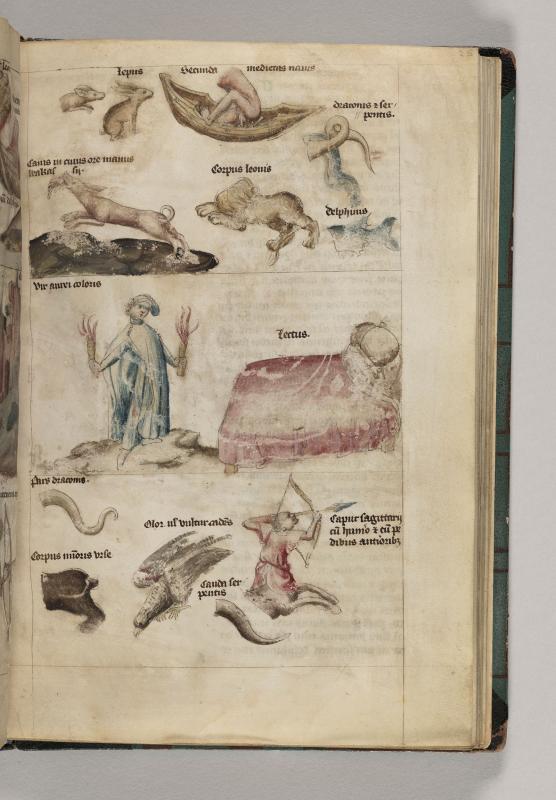 lepus
Secunda medietas navis
draconis ⁊ ser
pentis.
Canis in cuius ore manus
Corpus leonis
delphinus
Vir aurei coloris
Lectus.
Pars draconis.
Olor. ul' vultur cadēs
Caput sagittarij
cū humo ⁊ cū pe
dibus anterioribȝ
Corpus mīoris urse
Cauda ser
pentis